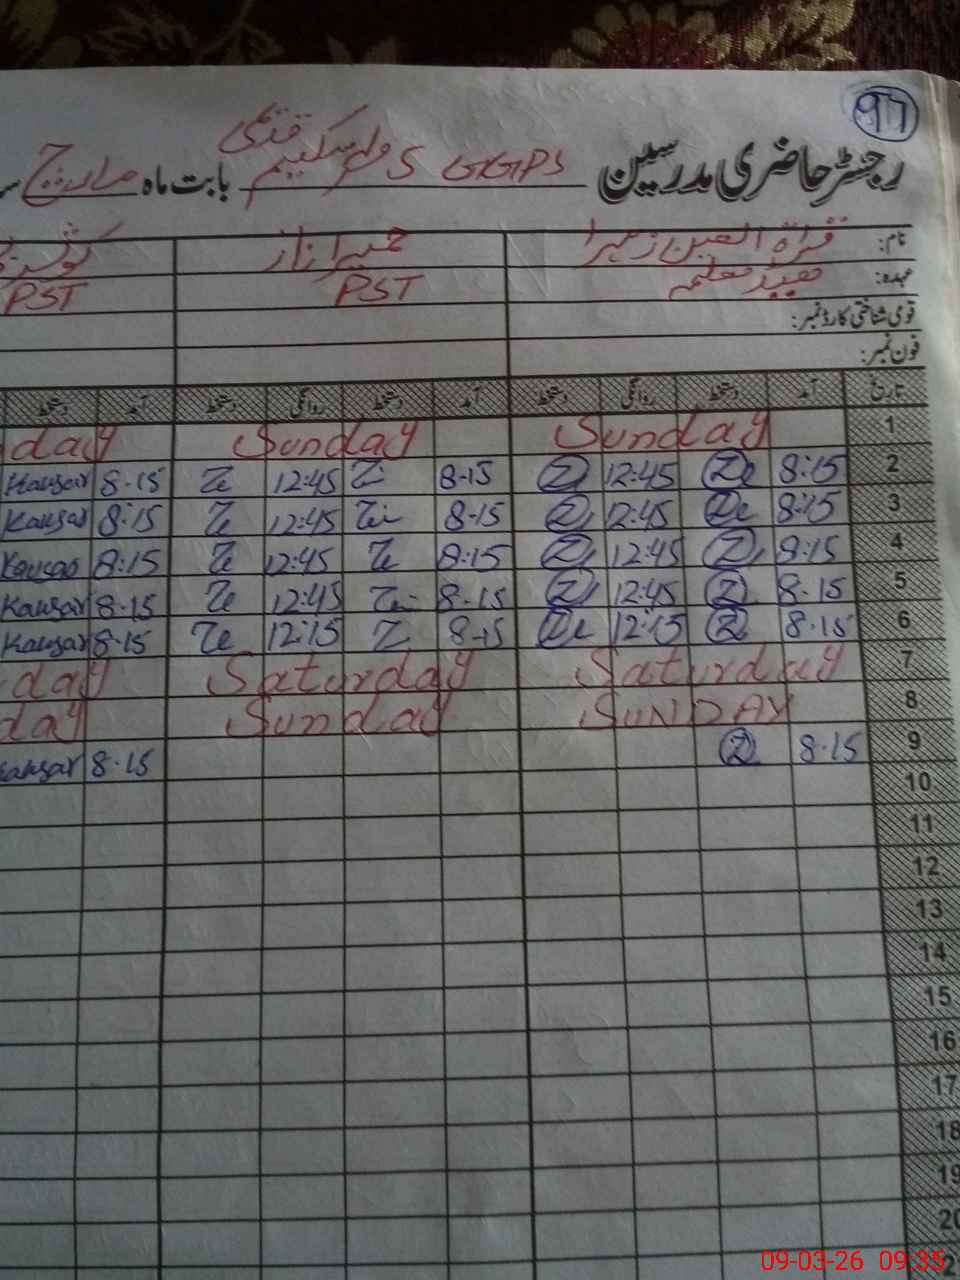 917
رجسٹر حاضری مدرسین GGPS 5 ولر سکیم بابت ماہ مارچ
نام: قراۃ العین زہرا حمیرا ناز کوثر
عہدہ: ہیڈ معلمہ PST PST
قومی شناختی کارڈ نمبر:
فون نمبر:
تاریخ آمد دستخط روانگی دستخط آمد دستخط روانگی دستخط آمد دستخط
1 Sunday Sunday day
2 8:15 12:45 8-15 12:45 8-15 Kausar
3 8:15 12:45 8-15 12:45 8:15 Kausar
4 8:15 12:45 8:15 12:45 8:15 Kausar
5 8:15 12:45 8-15 12:45 8-15 Kausar
6 8-15 12:15 8-15 12:15 8-15 Kausar
7 Saturday Saturday day
8 SUNDAY Sunday day
9 8-15 8-15 Kausar
10
11
12
13
14
15
16
17
18
19
20
09-03-26 09:35